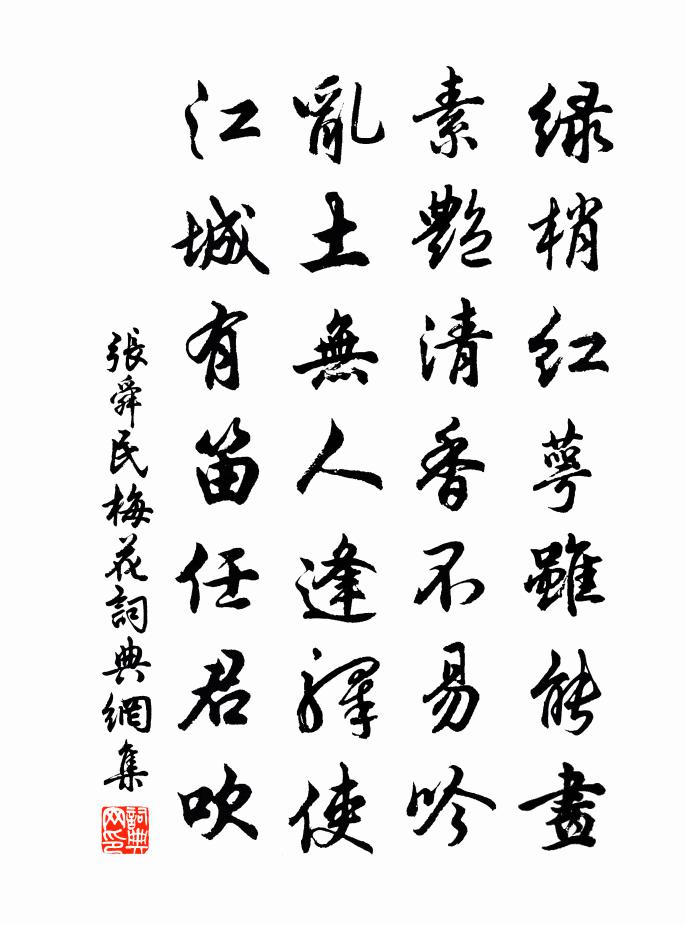 绿梢紅萼雖能畫
素艷清香不易吟
亂土無人逢驛使
江城有笛任君吹
張舜民梅花詞典網集
詞典网印